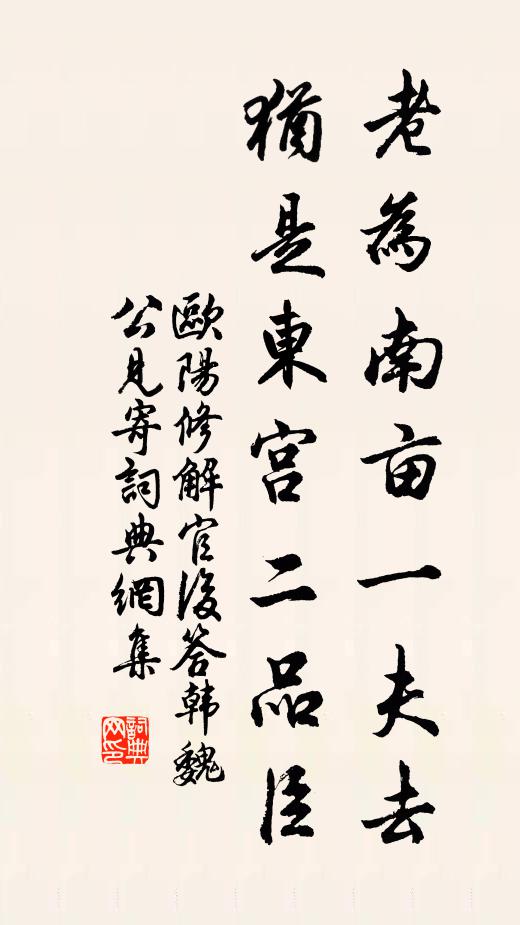 老為南亩一夫去
猶是東宫二品臣
歐陽修解官後答韩魏
公見寄詞典網集
詞典
网印